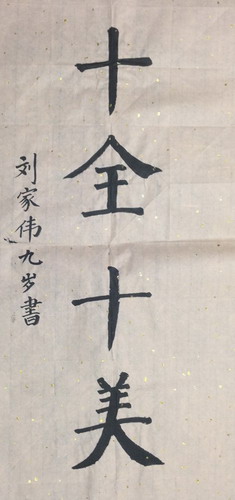 十全十美
刘家伟九岁書